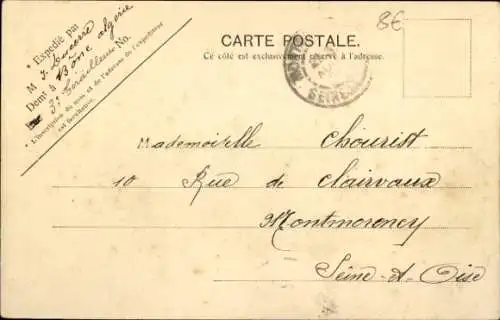 * Expédié par
M J. Lucerre
Demt à Bône algérie
3e Tirailleurs No.
* L'inscription du nom et de l'adresse de l'expéditeur
est facultative.
8€
CARTE POSTALE.
Ce côté est exclusivement réservé à l'adresse.
SEINE
Mademoiselle Chourist
10 Rue de Clairvaux
Montmorency
Seine-et-Oise